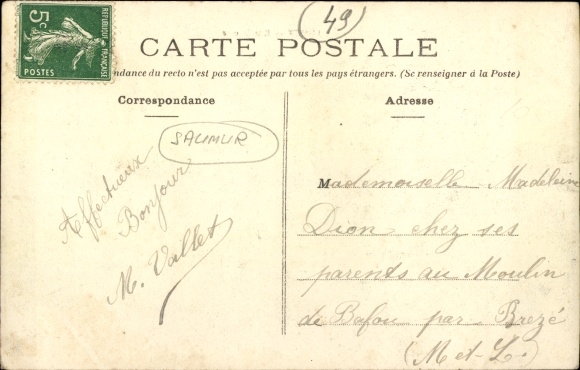 (49)
RÉPUBLIQUE FRANÇAISE
5c
POSTES
CARTE POSTALE
ndance du recto n'est pas acceptée par tous les pays étrangers. (Se renseigner à la Poste)
Correspondance
Adresse
SAUMUR
Affectueux
Bonjour
M. Vallet
Mademoiselle Madeleine
Dion chez ses
parents au Moulin
de Bafou par Brezé
(M et-L.)